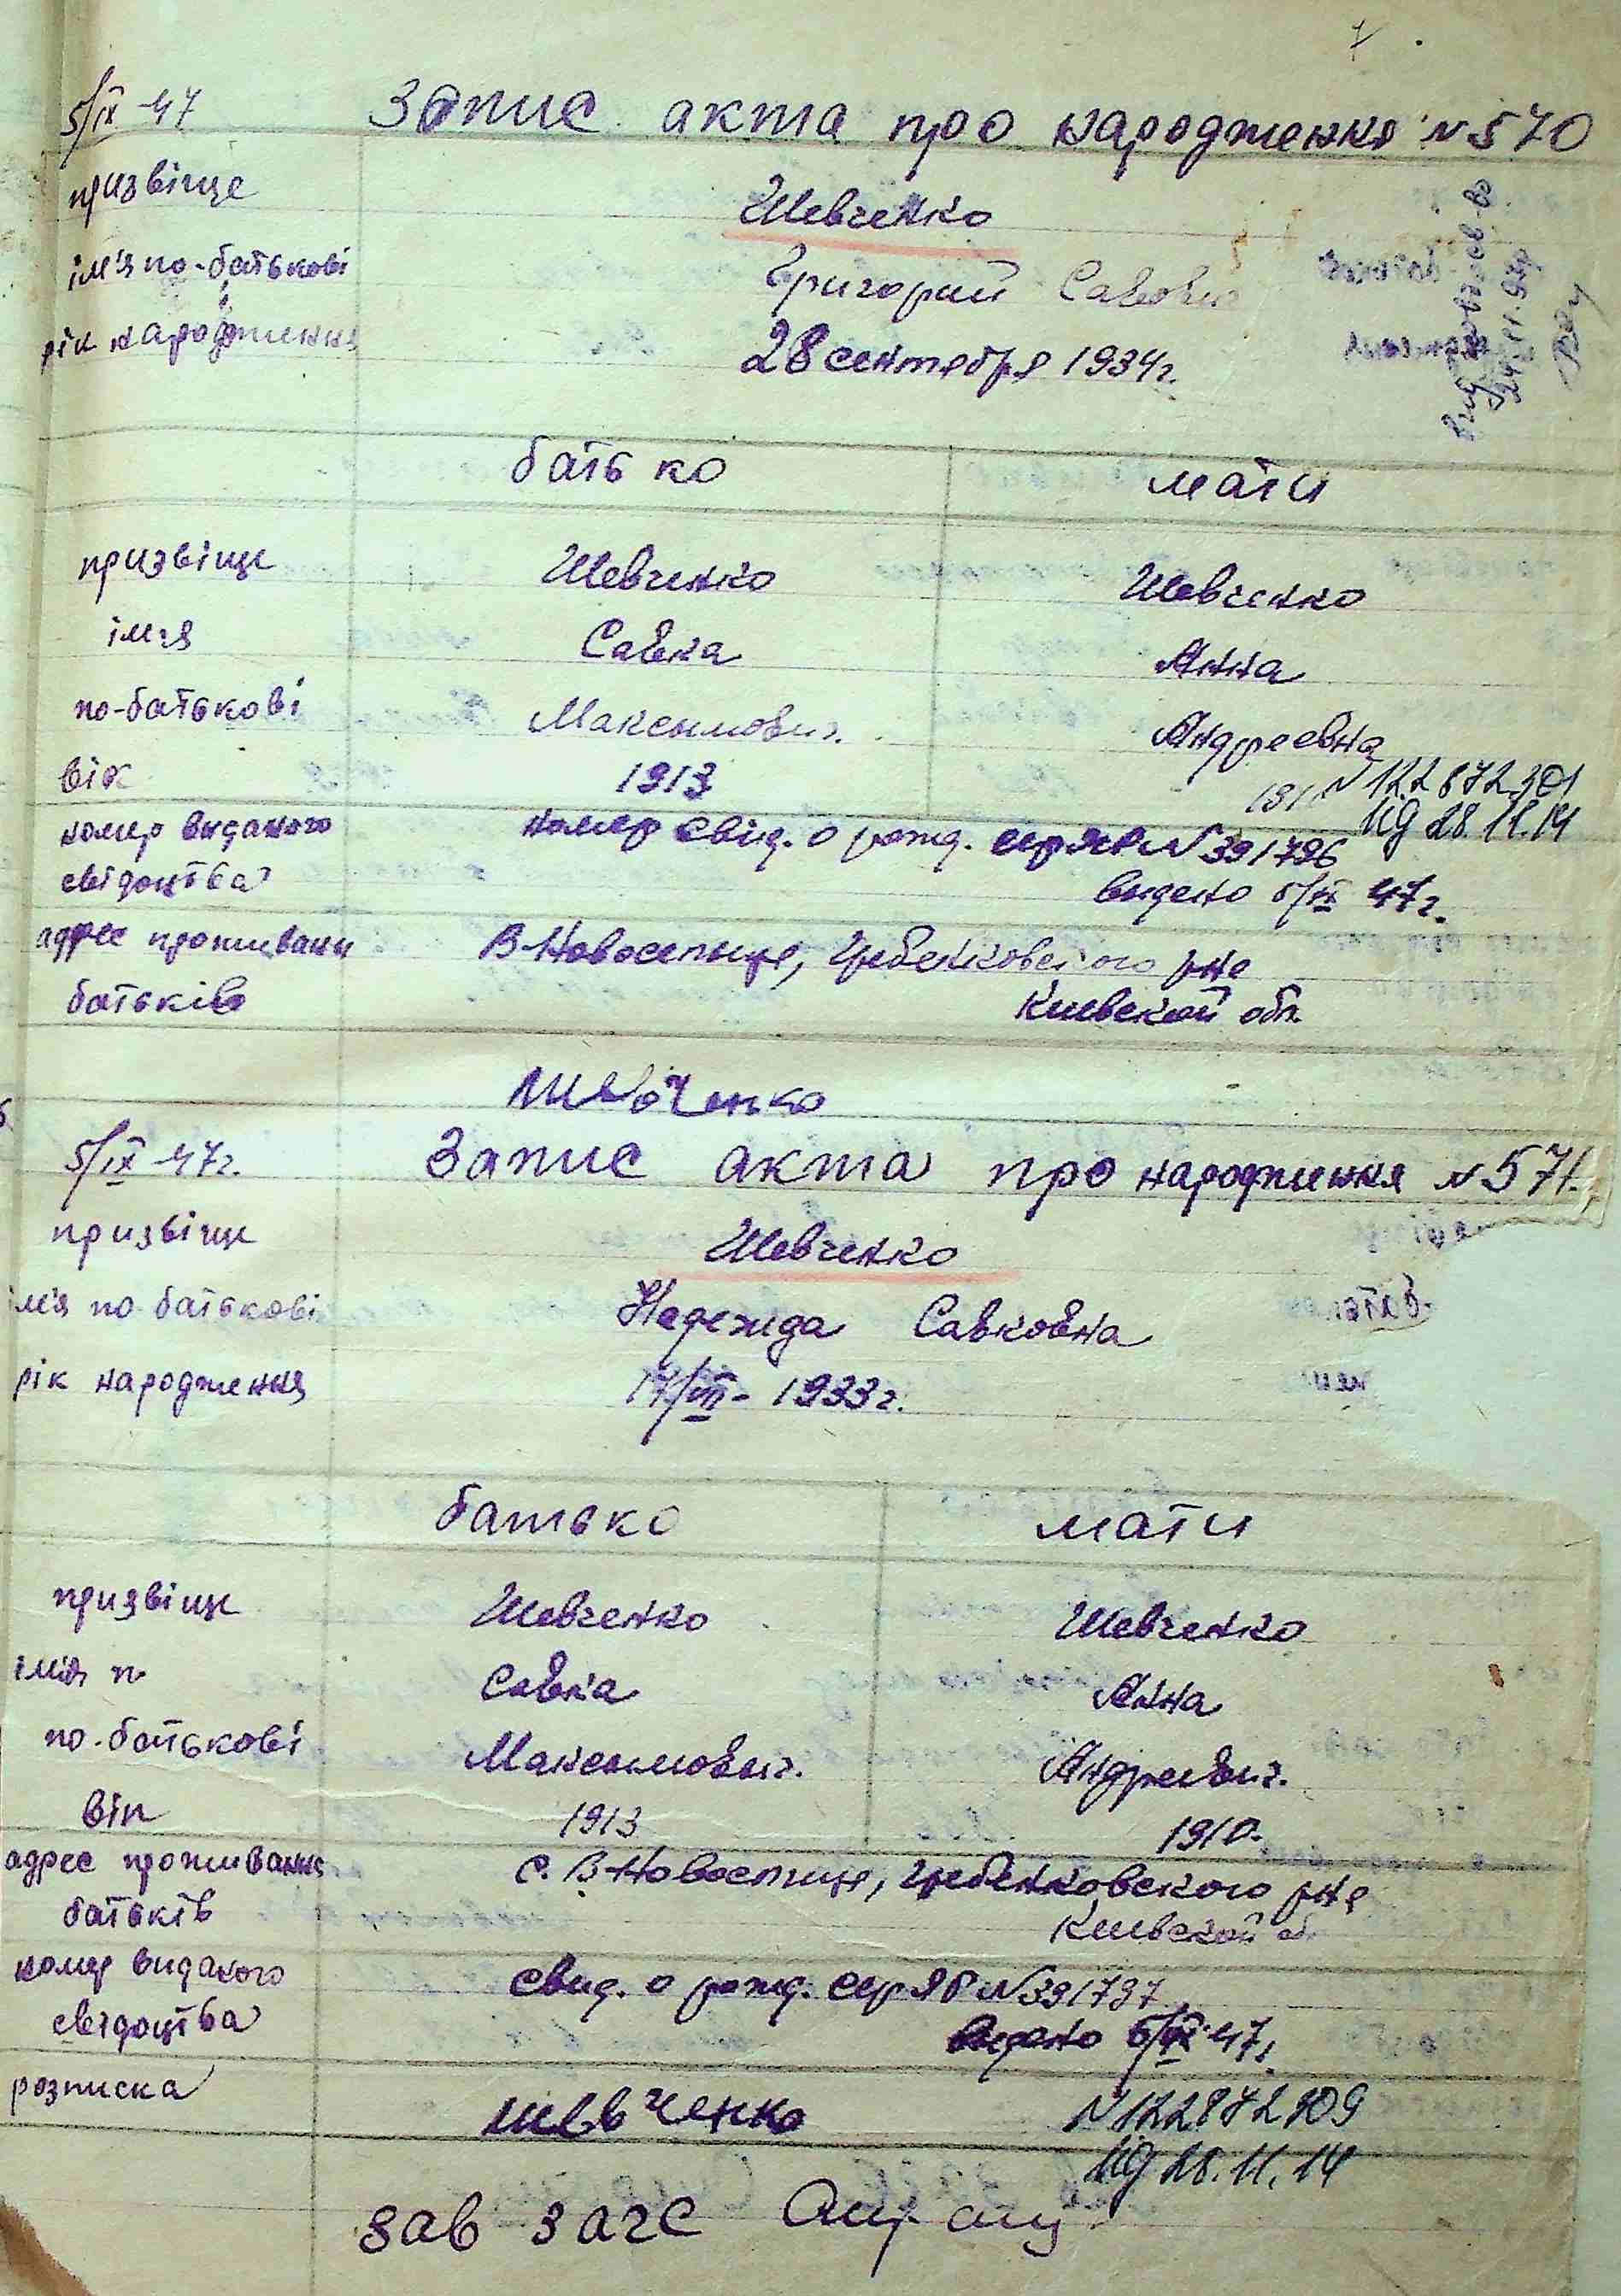 5/IX 47 Запис акта про народження №570
призвіще Шевченко
ім'я по-батькові Григорий Савович
рік народження 28 сентября 1934г.
батько мати
призвіще Шевченко Шевченко
ім'я Савка Анна
по-батькові Максимович. Андреевна
вік 1913 191
N 122872301
28.11.14
номер виданого номер свід. о рожд. сер ЯР №391796
свідоцтва видено 5/IX 47г.
адрес проживани В-Новоселице, Гребенковского р-не
батьків Киевской обл.
Шевченко
5/IX 47г. Запис акта про народження №571.
призвіще Шевченко
ім'я по батькові Надежида Савковна
рік народження 17/VII- 1933г.
батько мати
призвіще Шевченко Шевченко
ім'я Савка Анна
по-батькові Максимович. Андреевич.
вік 1913 1910.
адрес проживання С. В-Новоселице, Гребенковского р-не
батьків Киевской об.
номер виданого свид. о рожд. сер ЯР №391797
свідоцтва видено 5/IX 47г.
розписка Шевченко N122872909
28.11.14
зав загс